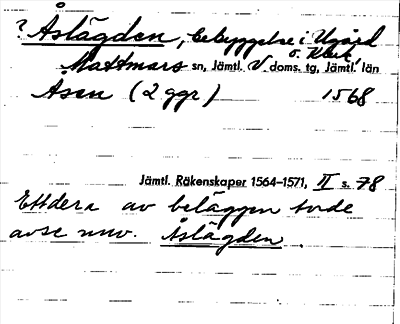 ? Åslägden, bebyggelse i Ugård
o. Klev,
Mattmars sn, Jämtl. V. doms. tg, Jämtl. län
Åsen (2 ggr) 1568
Jämtl. Räkenskaper 1564–1571, II s. 78
Ettdera av beläggen torde
avse nuv. Åslägden.